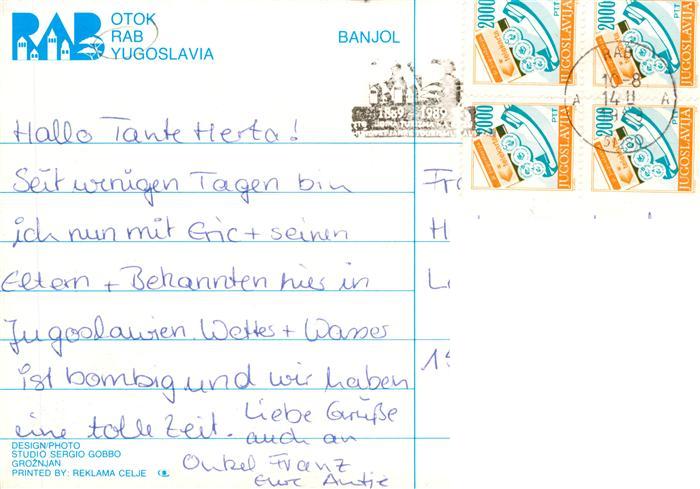 RAB
OTOK
RAB
YUGOSLAVIA
BANJOL
2000
PTT
JUGOSLAVIJA
2000
PTT
JUGOSLAVIJA
2000
PTT
JUGOSLAVIJA
2000
PTT
JUGOSLAVIJA
1889 1989
RAB
10-8
14 11
A A
Hallo Tante Herta!
Seit wenigen Tagen bin
ich nun mit Eric + seinen
Eltern + Bekannten hier in
Jugoslawien. Wetter + Wasser
ist bombig und wir haben
eine tolle Zeit. Liebe Grüße
auch an
Onkel Franz
Eure Antje
DESIGN/PHOTO
STUDIO SERGIO GOBBO
GROŽNJAN
PRINTED BY: REKLAMA CELJE